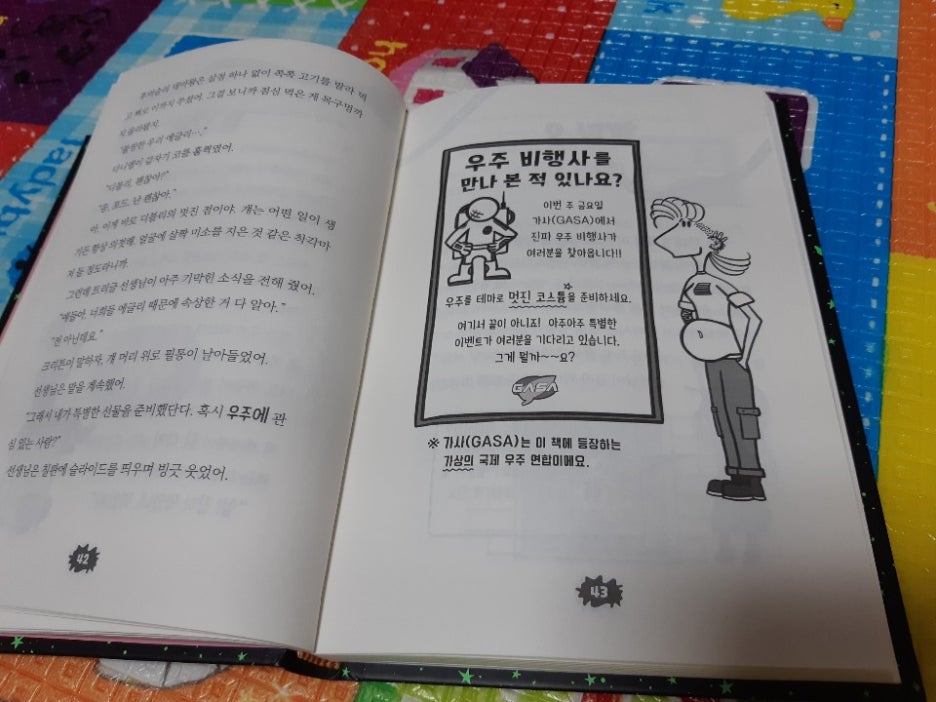 후식숟의 대마왕은 살점 하나 없이 쪽쪽 고기를 발라 먹
고 뼈도 이까지 쑤셨어. 그걸 보니까 점심 먹은 게 목구멍까
지 올라왔지.
"불쌍한 우리 에글리…."
다니엘이 갑자기 코를 훌쩍였어.
"디블리, 괜찮아?"
"응, 포드. 난 괜찮아."
아, 이게 바로 디블리의 멋진 점이야. 걔는 어떤 일이 생
겨도 항상 의젓해. 얼굴에 살짝 미소를 지은 것 같은 착각마
저 들 정도라니까.
그런데 트리글 선생님이 아주 기막힌 소식을 전해 줬어.
"얘들아, 너희들 에글리 때문에 속상한 거 다 알아."
"전 아닌데요."
크리튼이 말하자, 걔 머리 위로 필통이 날아들었어.
선생님은 말을 계속했어.
"그래서 내가 특별한 선물을 준비했단다. 혹시 우주에 관
심 있는 사람?"
선생님은 칠판에 슬라이드를 띄우며 빙긋 웃었어.
42
우주 비행사를
만나 본 적 있나요?
이번 주 금요일
가사(GASA)에서
진짜 우주 비행사가
여러분을 찾아옵니다!!
우주를 테마로 멋진 코스튬을 준비하세요.
여기서 끝이 아니죠! 아주아주 특별한
이벤트가 여러분을 기다리고 있습니다.
그게 뭘까~~요?
GASA
※ 가사(GASA)는 이 책에 등장하는
가상의 국제 우주 연합이에요.
43